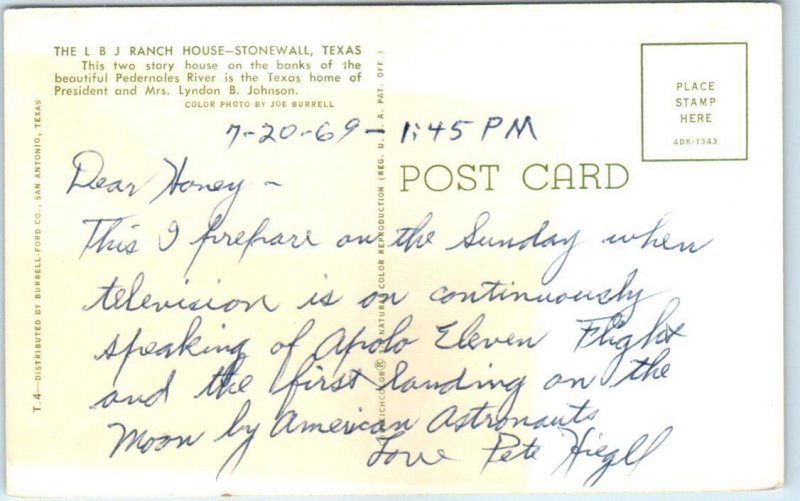 THE L B J RANCH HOUSE—STONEWALL, TEXAS
This two story house on the banks of the
beautiful Pedernales River is the Texas home of
President and Mrs. Lyndon B. Johnson.
COLOR PHOTO BY JOE BURRELL
PLACE
STAMP
HERE
4DK-1343
7-20-69 - 1:45 PM
POST CARD
Dear Honey -
This I prepare on the Sunday when
television is on continuously
speaking of Apolo Eleven Flight
and the first landing on the
Moon by American Astronauts
Love Pete Hiegll
T.4—DISTRIBUTED BY BURRELL-FORD CO., SAN ANTONIO, TEXAS
NATURAL COLOR REPRODUCTION (REG. U. S. A. PAT. OFF.)